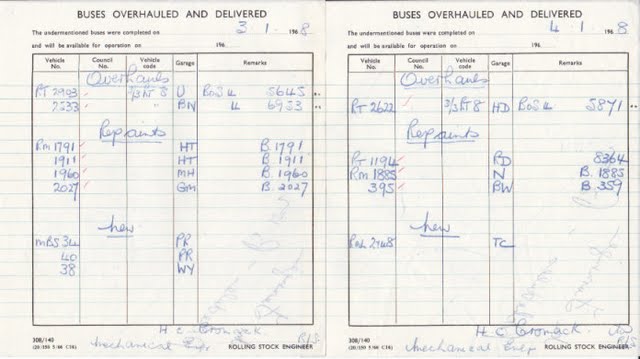 BUSES OVERHAULED AND DELIVERED
The undermentioned buses were completed on 3.1. 1968
and will be available for operation on 196
Vehicle No. Council No. Vehicle code Garage Remarks
Overhauls
RT 2903 2/3RT8 U Bos 4 5645
2533 " BN 4 6953
Repaints
RM 1791 HT B.1791
1911 HT B.1911
1960 MH B.1960
2027 GM B.2027
New
MBS 34 PR
40 PR
38 WY
H. C. Cromack.
308/140
Mechanical Engr ROLLING STOCK ENGINEER
BUSES OVERHAULED AND DELIVERED
The undermentioned buses were completed on 4.1. 1968
and will be available for operation on 196
Vehicle No. Council No. Vehicle code Garage Remarks
Overhauls
RT 2622 3/3RT8 HD Bos 4 5871
Repaints
RT 1194 RD 8364
RM 1885 N B.1885
395 BW B.359
New
TC
H. C. Cromack.
308/140
Mechanical Engr ROLLING STOCK ENGINEER